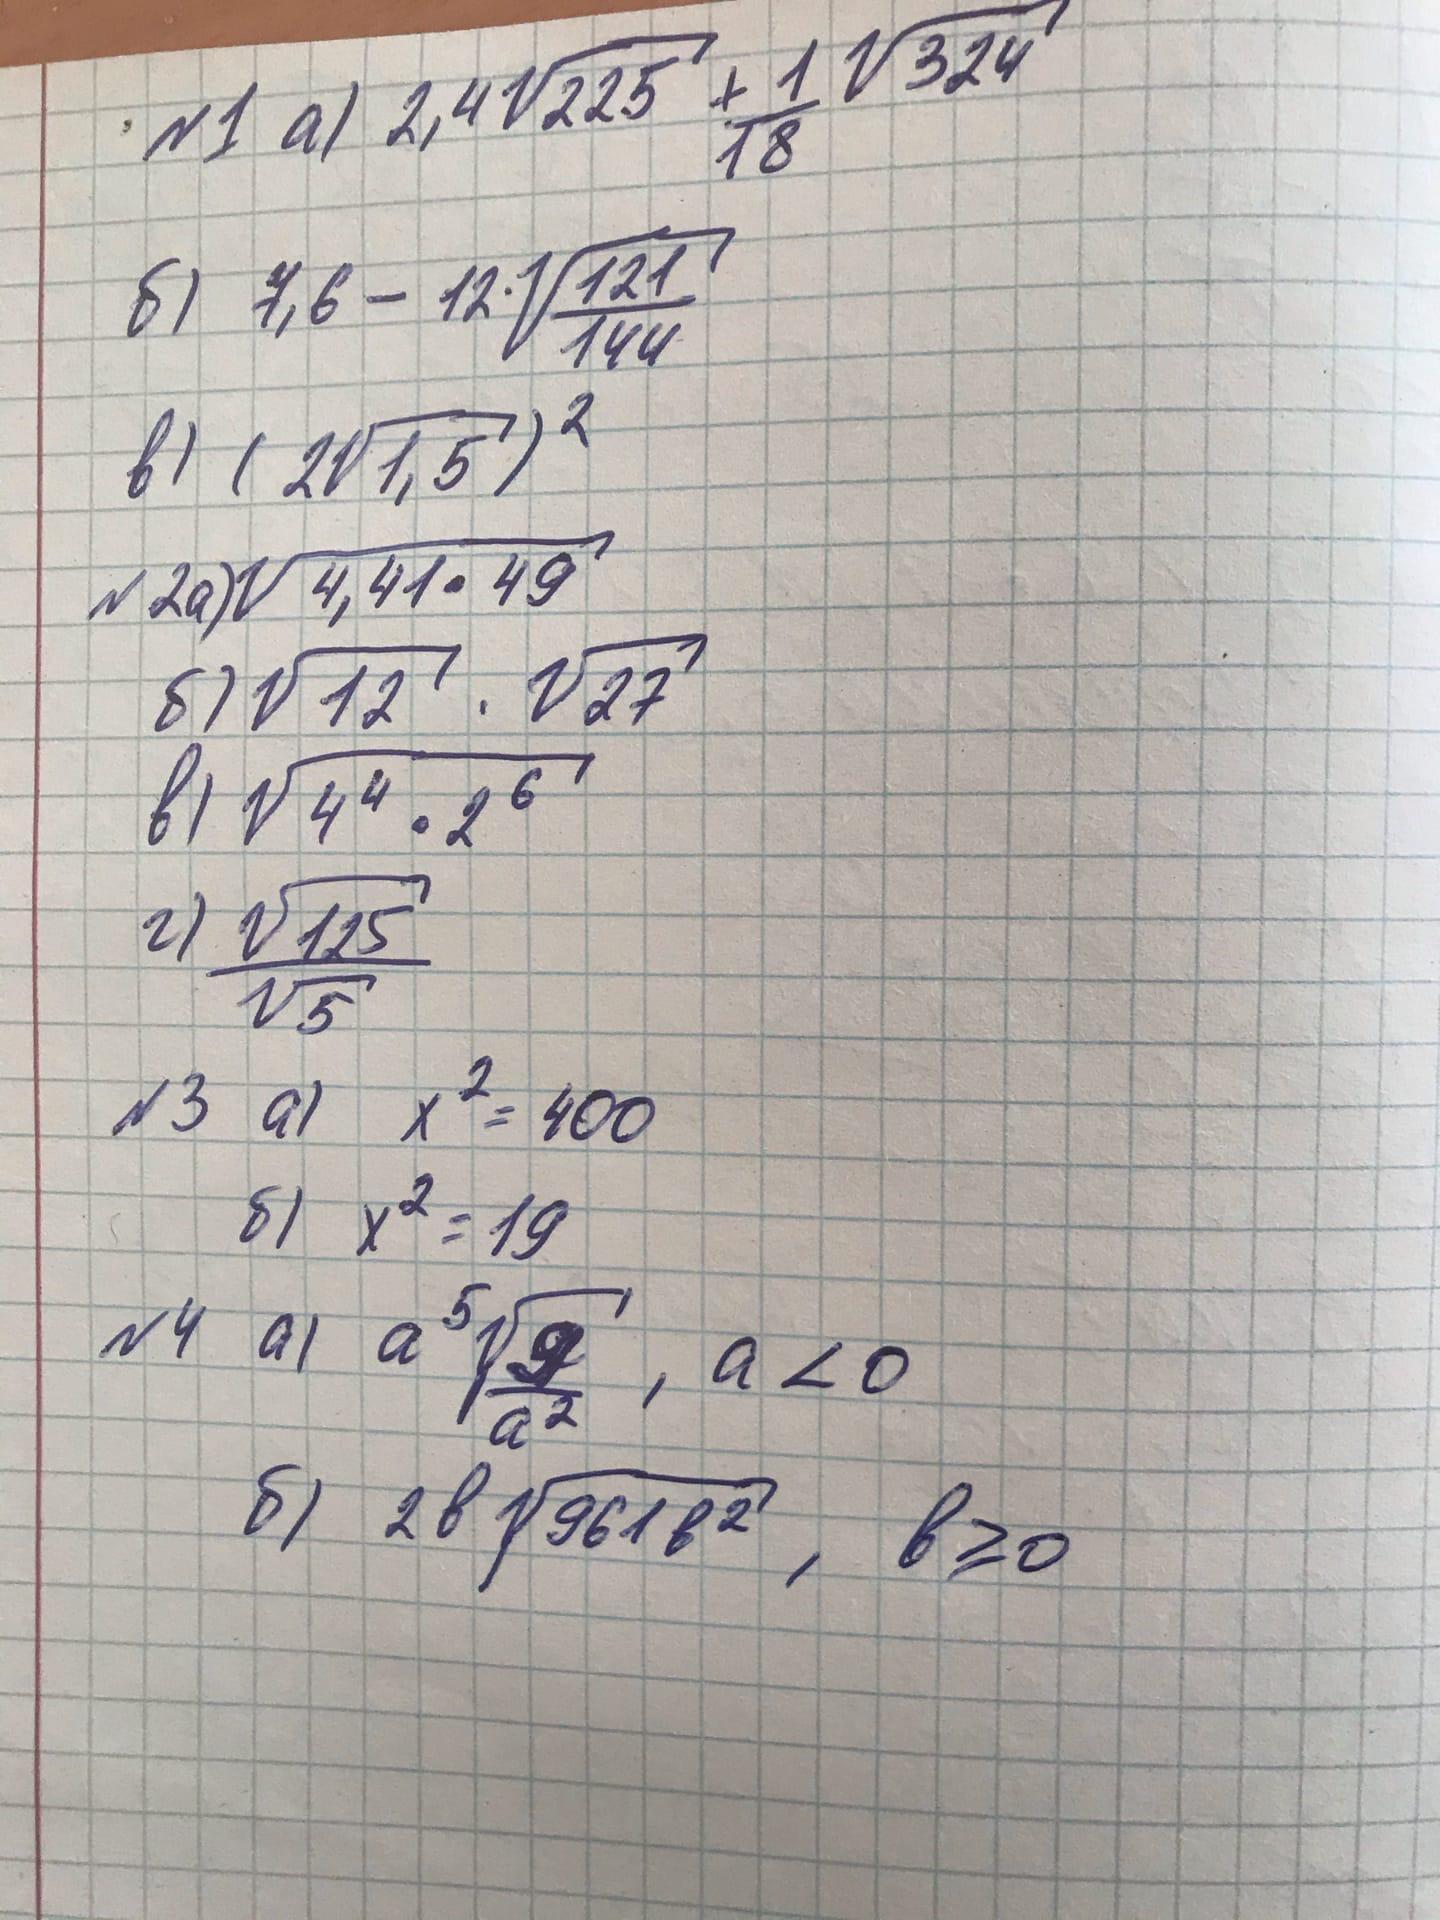 №1 а) 2,4√225 + 1/18 √324
б) 7,6 - 12·√(121/144)
в) (2√1,5)²
№2а) √(4,41·49)
б) √12 · √27
в) √(4⁴·2⁶)
г) √125/√5
№3 а) x² = 400
б) x² = 19
№4 а) a⁵√(9/a²), a < 0
б) 2в√(961в²), в ≥ 0